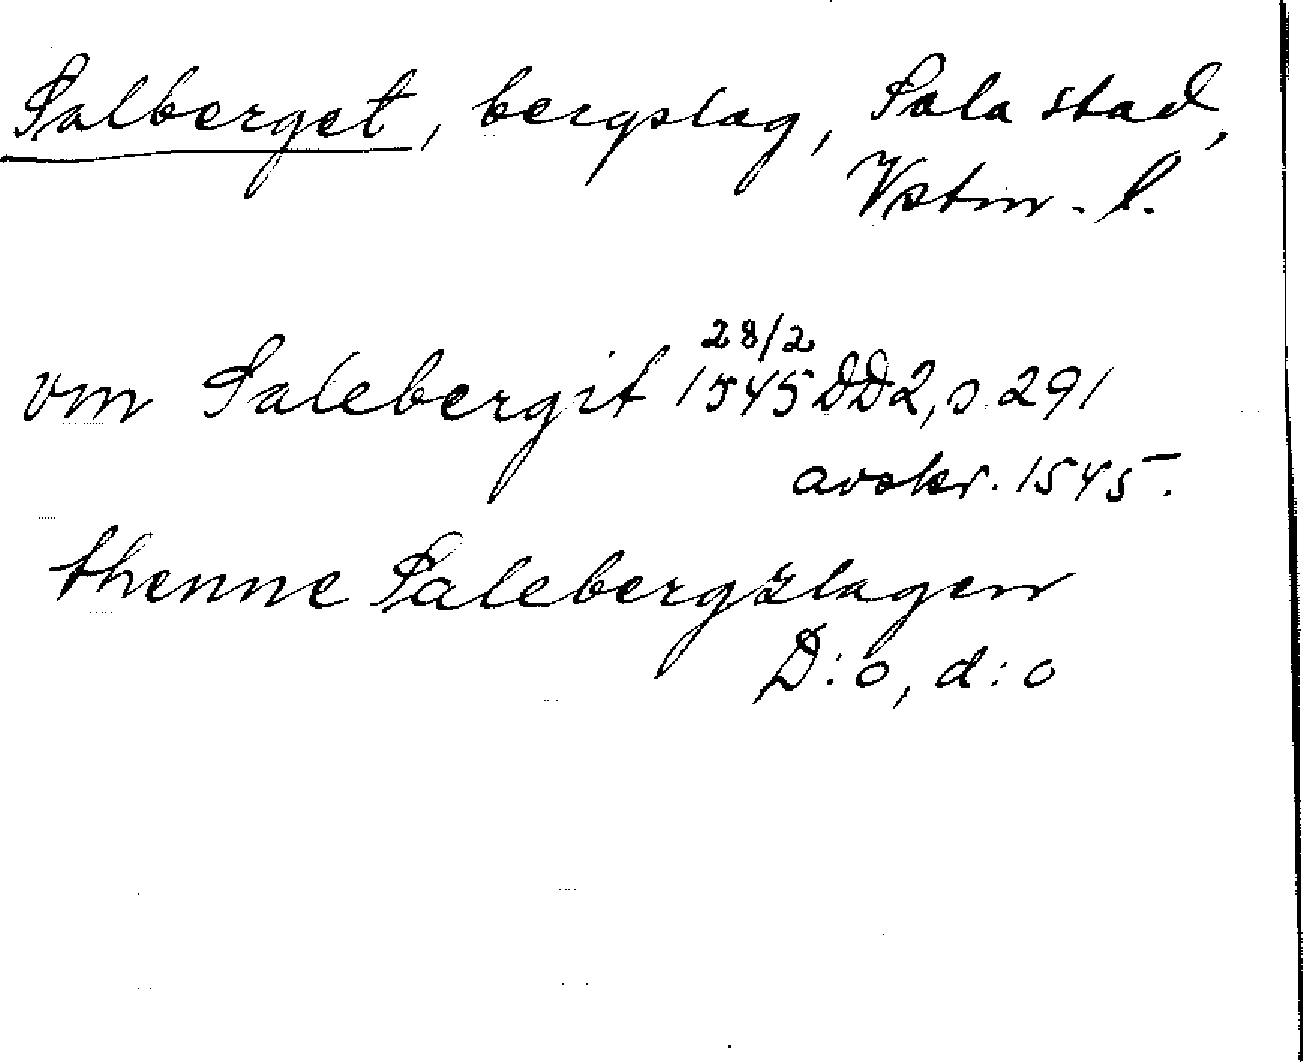 Salberget, bergslag, Sala stad,
Vstm. l.
28/2
vm Salebergit 1545 DD2, s. 291
avskr. 1545.
thenne Salebergzlagen
D:o, d:o